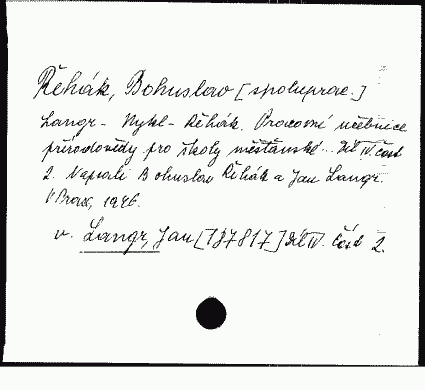 Řehák, Bohuslav [spoluprac.]
Langr - Mykl - Řehák. Pracovní učebnice
přírodovědy pro školy měšťanské... Díl IV. část
2. Napsali Bohuslav Řehák a Jan Langr.
V Praze, 1946.
v. Langr, Jan [137817] Díl IV. část 2.